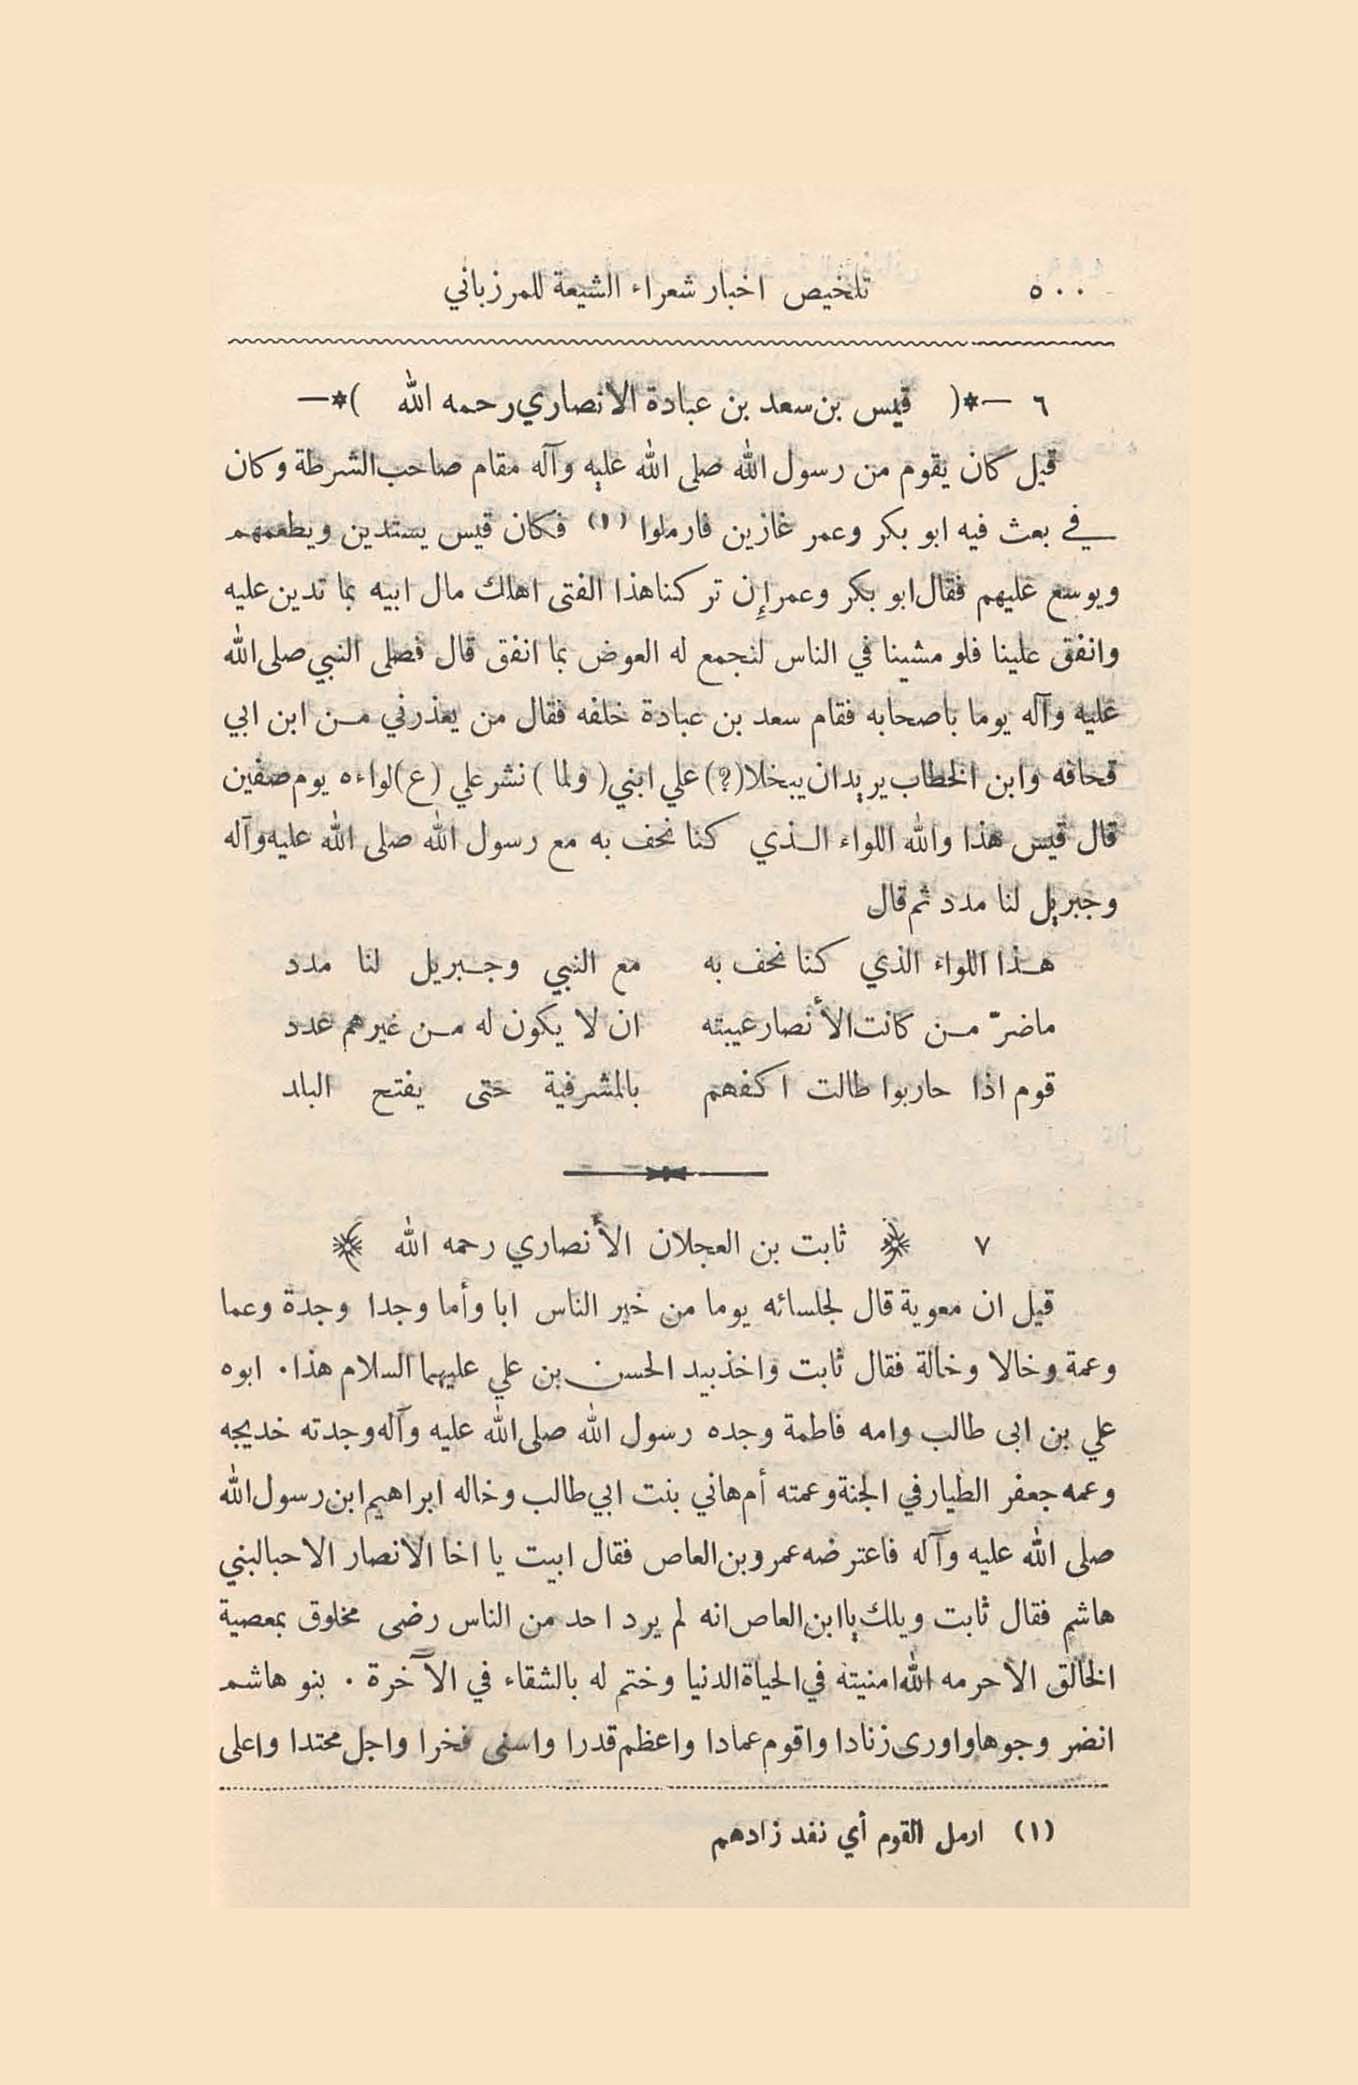 ٥٠٠ تلخيص اخبار شعراء الشيعة للمرزباني
٦ —*( قيس بن سعد بن عبادة الانصاري رحمه الله )*—
قيل كان يقوم من رسول الله صلى الله عليه وآله مقام صاحب الشرطة وكان
في بعث فيه ابو بكر وعمر غازين فارملوا (١) فكان قيس يستدين ويطعمهم
ويوسع عليهم فقال ابو بكر وعمر إن تركنا هذا الفتى اهلك مال ابيه بما تدين عليه
وانفق علينا فلو مشينا في الناس لنجمع له العوض بما انفق قال فصلى النبي صلى الله
عليه وآله يوما باصحابه فقام سعد بن عبادة خلفه فقال من يعذرني من ابن ابي
قحافه وابن الخطاب يريدان يبخلا (؟) علي ابني ( ولما ) نشر علي (ع) لواءه يوم صفين
قال قيس هذا والله اللواء الذي كنا نحف به مع رسول الله صلى الله عليه وآله
وجبريل لنا مدد ثم قال
هذا اللواء الذي كنا نحف به مع النبي وجبريل لنا مدد
ماضرّ من كانت الأنصار عيبته ان لا يكون له من غيرهم عدد
قوم اذا حاربوا طالت اكفهم بالمشرفية حتى يفتح البلد
٧ ﴿ ثابت بن العجلان الأنصاري رحمه الله ﴾
قيل ان معوية قال لجلسائه يوما من خير الناس ابا وأما وجدا وجدة وعما
وعمة وخالا وخالة فقال ثابت واخذ بيد الحسن بن علي عليهما السلام هذا . ابوه
علي بن ابى طالب وامه فاطمة وجده رسول الله صلى الله عليه وآله وجدته خديجه
وعمه جعفر الطيار في الجنة وعمته أم هاني بنت ابي طالب وخاله ابراهيم ابن رسول الله
صلى الله عليه وآله فاعترضه عمرو بن العاص فقال ابيت يا اخا الانصار الا حبا لبني
هاشم فقال ثابت ويلك يا ابن العاص انه لم يرد احد من الناس رضى مخلوق بمعصية
الخالق الا حرمه الله امنيته في الحياة الدنيا وختم له بالشقاء في الآخرة . بنو هاشم
انضر وجوها واورى زنادا واقوم عمادا واعظم قدرا واسنى فخرا واجل محتدا واعلى
(١) ارمل القوم أي نفد زادهم